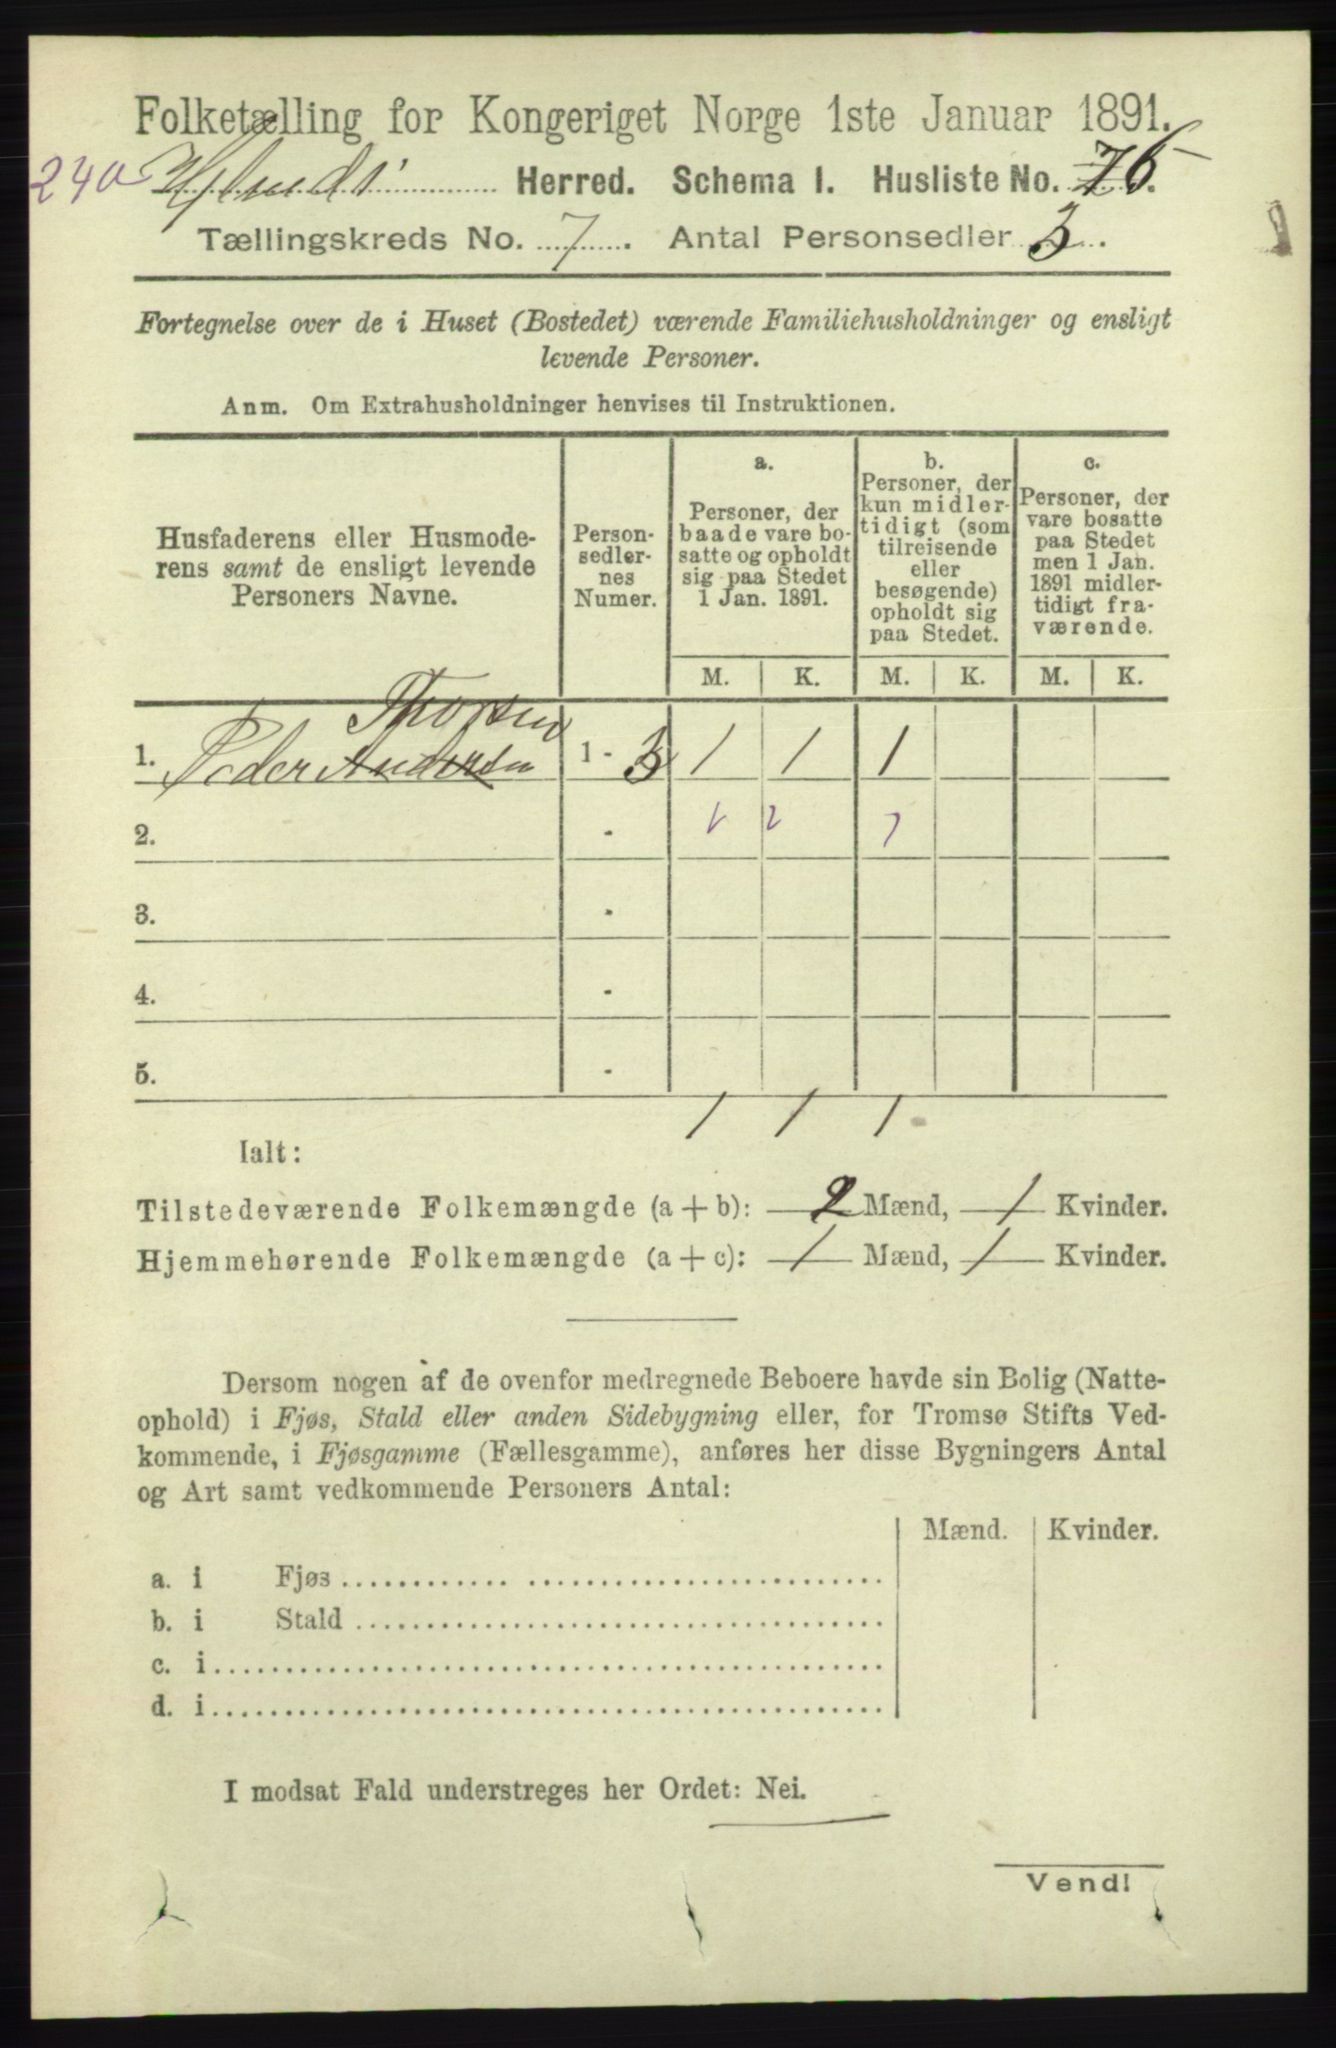 Folketælling for Kongeriget Norge 1ste Januar 1891.
240 Herred. Schema I. Husliste No. 76.
Tællingskreds No. 7. Antal Personsedler 3.
Fortegnelse over de i Huset (Bostedet) værende Familiehusholdninger og ensligt
levende Personer.
Anm. Om Extrahusholdninger henvises til Instruktionen.
Husfaderens eller Husmode-
rens samt de ensligt levende
Personers Navne.
Person-
sedler-
nes
Numer.
a.
Personer, der
baade vare bo-
satte og opholdt
sig paa Stedet
1 Jan. 1891.
b.
Personer, der
kun midler-
tidigt (som
tilreisende
eller
besøgende)
opholdt sig
paa Stedet.
c.
Personer, der
vare bosatte
paa Stedet
men 1 Jan.
1891 midler-
tidigt fra-
værende.
M. K. M. K. M. K.
Thorsen
1. Peder Andersen 1 - 3 1 1 1
2. -
3. -
4. -
5. -
1 1 1
Ialt:
Tilstedeværende Folkemængde (a + b): 2 Mænd, 1 Kvinder.
Hjemmehørende Folkemængde (a + c): 1 Mænd, 1 Kvinder.
Dersom nogen af de ovenfor medregnede Beboere havde sin Bolig (Natte-
ophold) i Fjøs, Stald eller anden Sidebygning eller, for Tromsø Stifts Ved-
kommende, i Fjøsgamme (Fællesgamme), anføres her disse Bygningers Antal
og Art samt vedkommende Personers Antal:
Mænd. Kvinder.
a. i Fjøs
b. i Stald
c. i
d. i
I modsat Fald understreges her Ordet: Nei.
Vend!